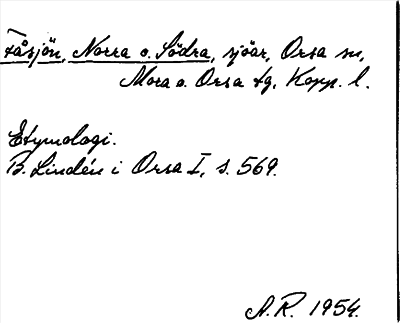 Fåsjön, Norra o. Södra, sjöar, Orsa sn,
Mora o. Orsa tg, Kopp. l.
Etymologi.
B. Lindén i Orsa I, s. 569.
A.R. 1954.